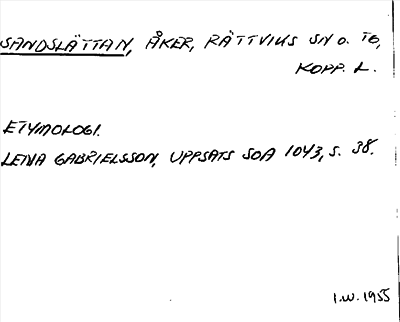 SANDSLÄTTAN, ÅKER, RÄTTVIKS SN O. TG,
KOPP. L.
ETYMOLOGI.
LENA GABRIELSSON, UPPSATS SOA 1043, S. 38.
I.W. 1955